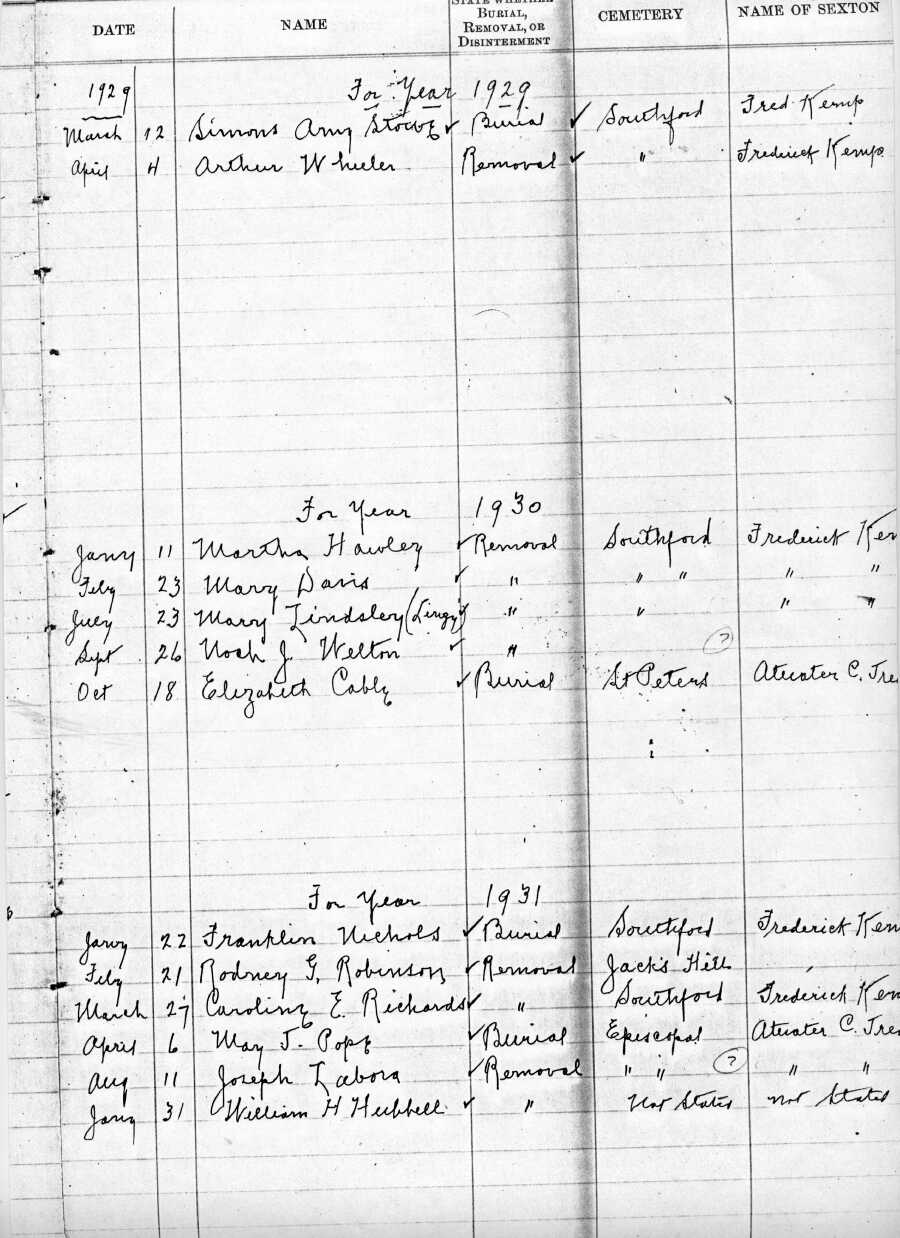 DATE NAME STATE WHETHER BURIAL, REMOVAL, OR DISINTERMENT CEMETERY NAME OF SEXTON
1929 For Year 1929
March 12 Simons Amy Stowe ✓ Burial ✓ Southford Fred Kemp
April 4 Arthur Wheeler Removal ✓ " Frederick Kemp
For Year 1930
Jany 11 Martha Hawley ✓ Removal Southford Frederick Kem
Feby 23 Mary Davis ✓ " " " " "
July 23 Mary Lindsley ✓ " " " "
Sept 26 Noah J. Welton ✓ " (?)
Oct 18 Elizabeth Cable ✓ Burial St Peters Atwater C. Tre
For Year 1931
Jany 22 Franklin Nichols ✓ Burial Southford Frederick Kem
Feby 21 Rodney G. Robinson ✓ Removal Jack's Hill
March 27 Caroline E. Richards ✓ " Southford Frederick Kem
April 6 May J. Pope ✓ Burial Episcopal Atwater C. Tre
Aug 11 Joseph Labora ✓ Removal " " (?) " "
Jany 31 William H Hubbell ✓ " Not Stated not Stated